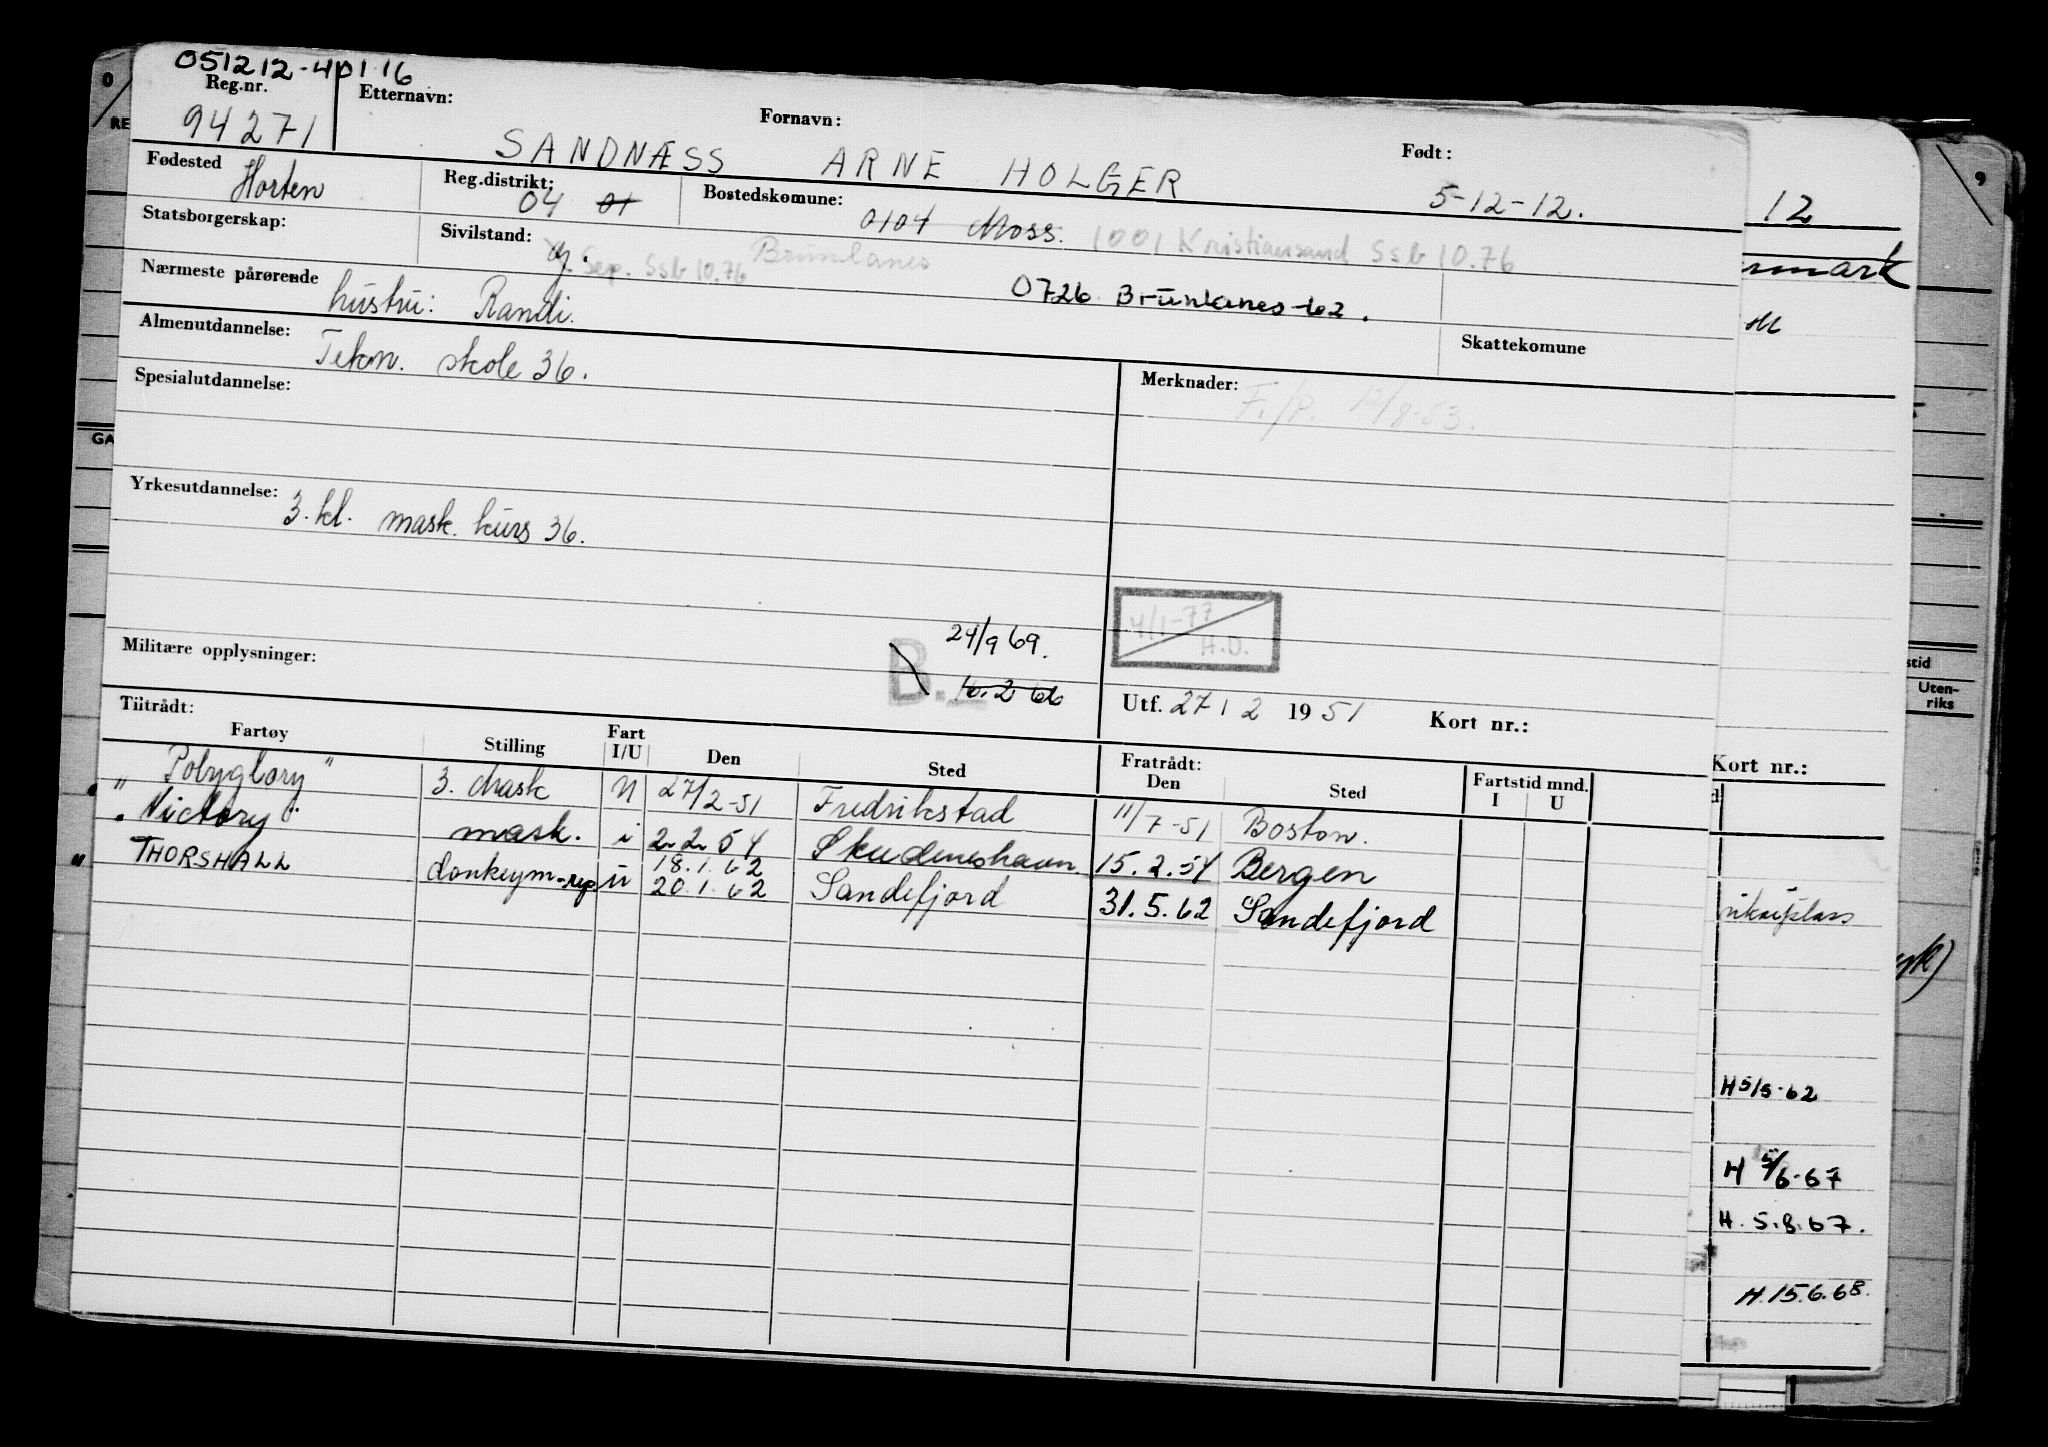 051212-40116
Reg.nr. Etternavn: Fornavn: Født:
94271 SANDNÆSS ARNE HOLGER 5-12-12.
Fødested Horten Reg.distrikt: 04 01 Bostedskomune: 0104 Moss. 1001 Kristiansand Ssb 10.76
Statsborgerskap: Sivilstand: g. Sep. Ssb 10.76 Brunlanes
Nærmeste pårørende hustru: Randi. 0726 Brunlanes-62.
Almenutdannelse: Tekn. skole 36. Skattekomune
Spesialutdannelse: Merknader: F./P. 12/8-53.
Yrkesutdannelse: 3. kl. mask. kurs 36.
4/1-77 H.O.
Militære opplysninger: B. 24/9 69.
16.2 62
Utf. 27/2 1951 Kort nr.:
Tiltrådt: Fratrådt:
Fartøy Stilling Fart I/U Den Sted Den Sted Fartstid mnd. I U
"Polyglory" 3. Mask U 27/2-51 Fredrikstad 11/7-51 Boston.
"Victory" mask. i 2.2.54 Skudeneshavn 15.2.54 Bergen
" THORSHALL donkeym-rep u 18.1.62 20.1.62 Sandefjord 31.5.62 Sandefjord
12
Kort nr.:
H 5/5-62
H. 5.8.67.
H. 15.6.68.
Uten-
riks
9
0
RE
GA